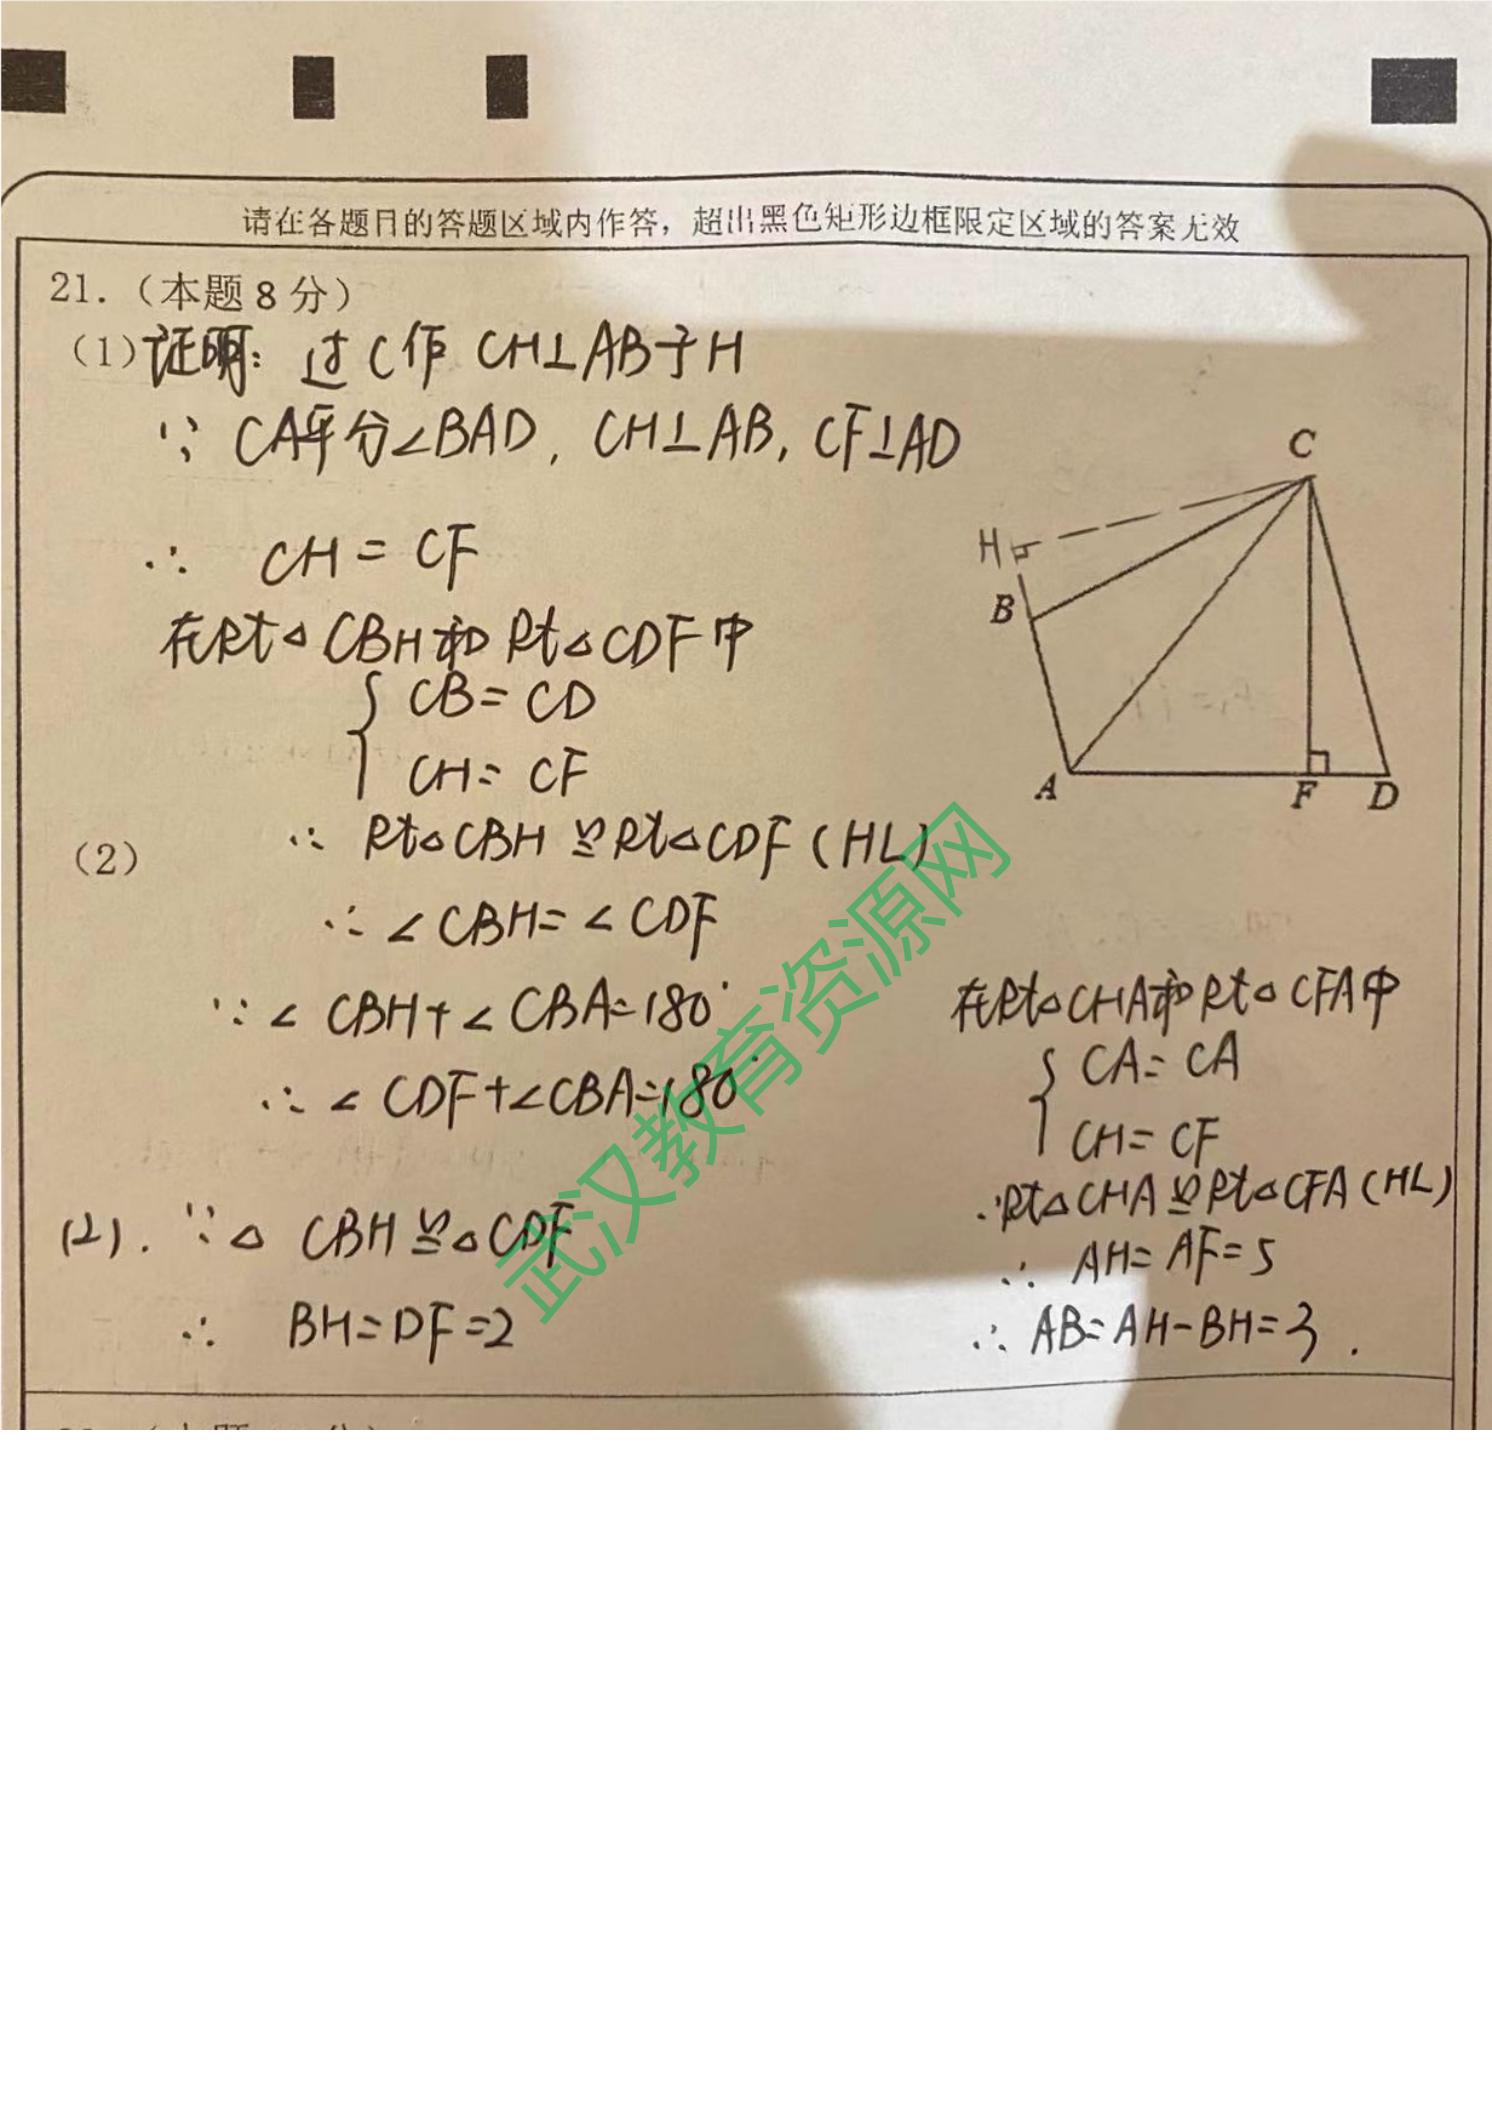 请在各题目的答题区域内作答，超出黑色矩形边框限定区域的答案无效
21.（本题 8 分）
（1）证明：过 C 作 CH⊥AB于H
∵ CA平分∠BAD，CH⊥AB，CF⊥AD
∴ CH = CF
在Rt△CBH和Rt△CDF中
{ CB = CD
CH = CF
（2）
∴ Rt△CBH≌Rt△CDF（HL）
∴ ∠CBH=∠CDF
∵∠CBH+∠CBA=180°
∴∠CDF+∠CBA=180°
(2). ∵△CBH≌△CDF
∴ BH=DF=2
在Rt△CHA和Rt△CFA中
{ CA=CA
CH=CF
∴Rt△CHA≌Rt△CFA（HL）
∴ AH=AF=5
∴ AB=AH-BH=3.
C
H
B
A
F
D
武汉教育资源网